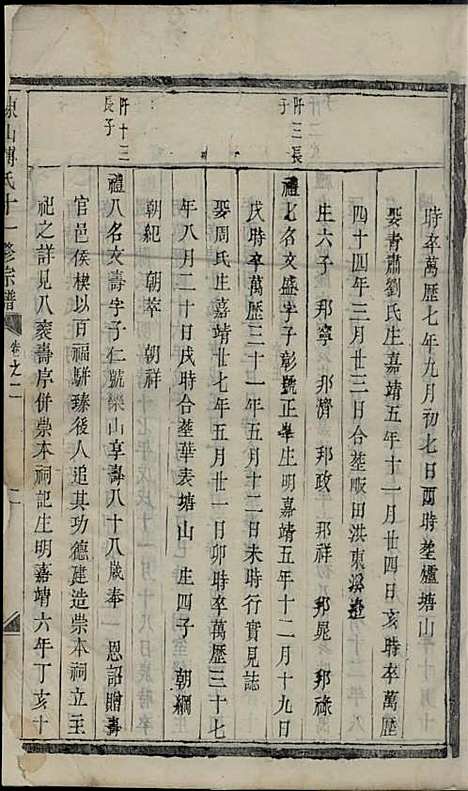 時卒萬歷七年九月初七日酉時塟爐塘山
娶青肅劉氏生嘉靖五年十一月廿四日亥時卒萬歷
四十四年三月廿三日合塟販田洪東溪邊
生六子 邦寧 邦濟 邦政 邦祥 邦晃 邦祿
阡三長子
禮七名文盛字子彰號正峯生明嘉靖五年十二月十九日
戌時卒萬歷三十一年五月十二日未時行實見誌
娶周氏生嘉靖廿七年五月廿一日卯時卒萬歷三十七
年八月二十日戌時合塟華表塘山 生四子 朝綱
朝紀 朝萃 朝祥
阡十三長子
禮八名文壽字子仁號欒山享壽八十八歲奉 恩詔贈壽
官邑侯樸以百福駢臻後人追其功德建造崇本祠立主
祀之詳見八袠壽序併崇本祠記生明嘉靖六年丁亥十
氏十一修宗譜
卷之二
二